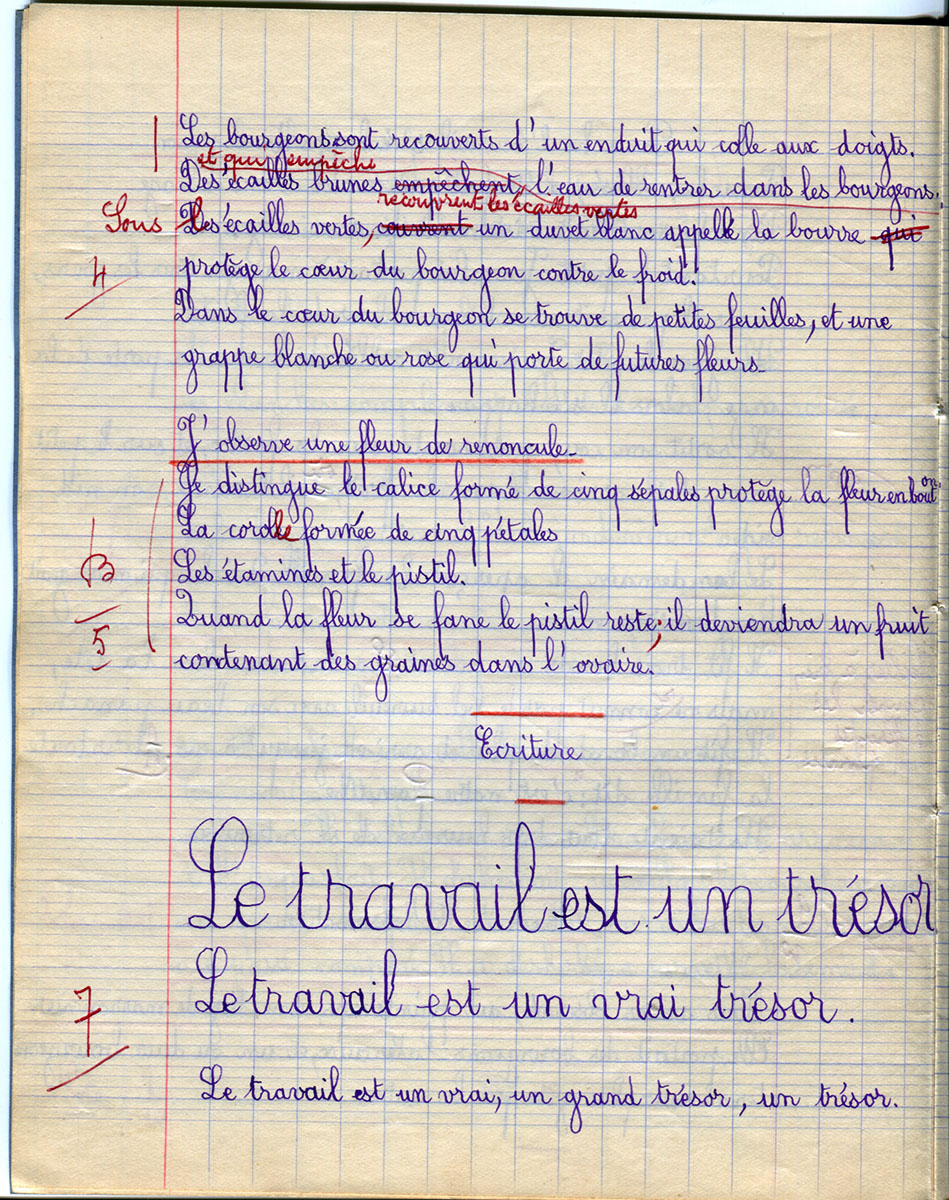 Les bourgeons sont recouverts d'un enduit qui colle aux doigts.
et qui empêche
Des écailles brunes empêchent l'eau de rentrer dans les bourgeons.
recouvrent les écailles vertes
Sous Les écailles vertes, couvrent un duvet blanc appellé la bourre qui
4
protège le cœur du bourgeon contre le froid.
Dans le cœur du bourgeon se trouve de petites feuilles, et une
grappe blanche ou rose qui porte de futures fleurs.
J'observe une fleur de renoncule.
Je distingue le calice formé de cinq sépales protège la fleur en bouton
La corolle formée de cinq pétales
B
Les étamines et le pistil.
5
Quand la fleur se fane le pistil reste; il deviendra un fruit
contenant des graines dans l'ovaire.
Ecriture
Le travail est un trésor
7
Le travail est un vrai trésor.
Le travail est un vrai, un grand trésor, un trésor.